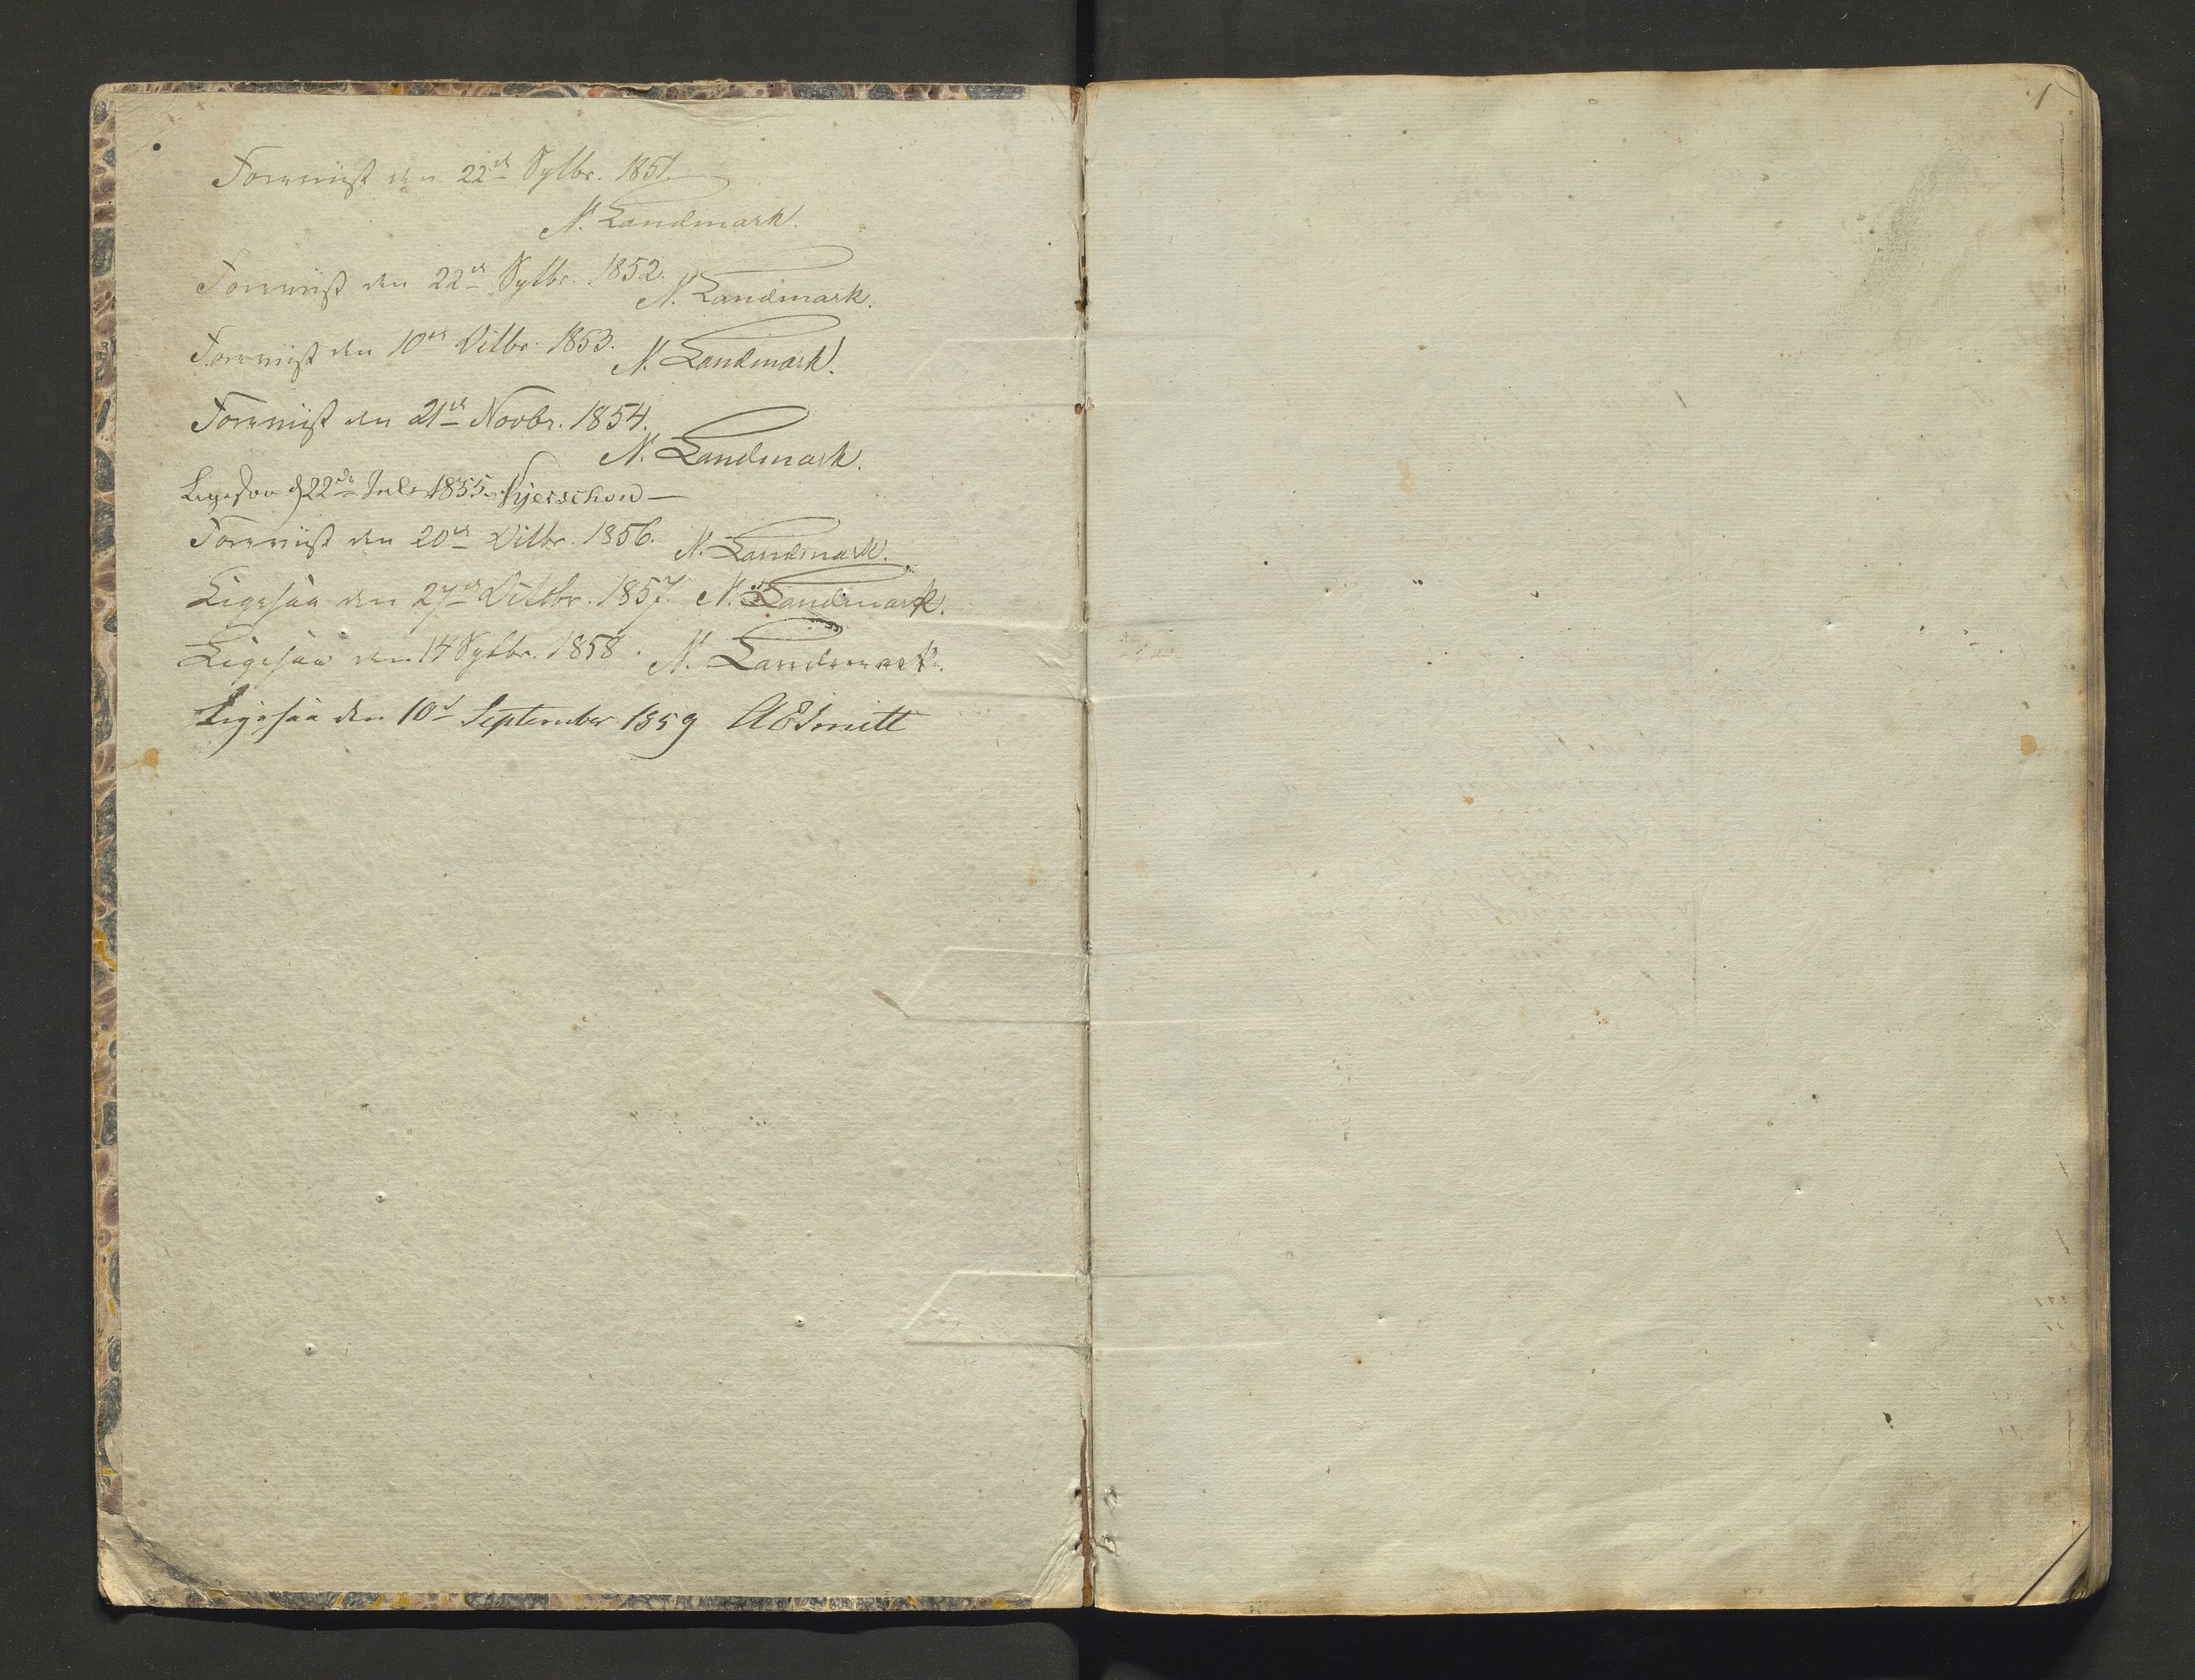 Foreviist den 22de Septbr. 1851
N. Landmark.
Foreviist den 22de Septbr. 1852. N. Landmark.
Foreviist den 10de Octbr. 1853. N. Landmark.
Foreviist den 21de Novbr. 1854.
N. Landmark.
Ligesaa d 22de 1855
Foreviist den 20de Octbr. 1856. N. Landmark.
Ligesaa den 27de Octbr. 1857. N. Landmark.
Ligesaa den 14 Septbr. 1858. N. Landmark.
Ligesaa den 10d September 1859 Smitt
1